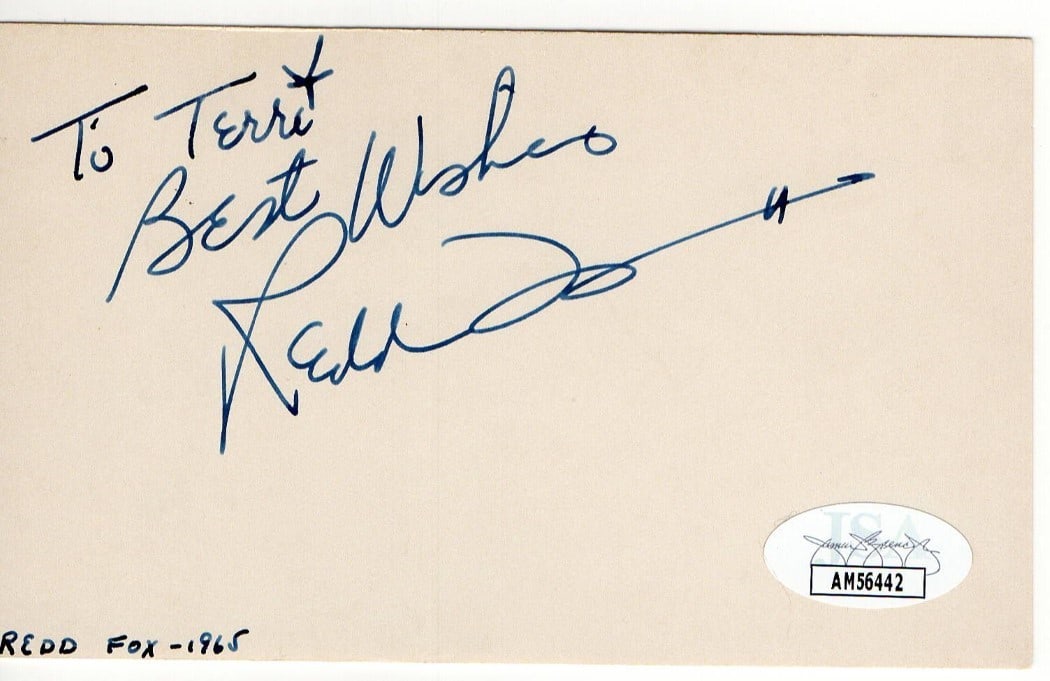 To Terri
Best Wishes
Redd
JSA
AM56442
REDD FOX -1965